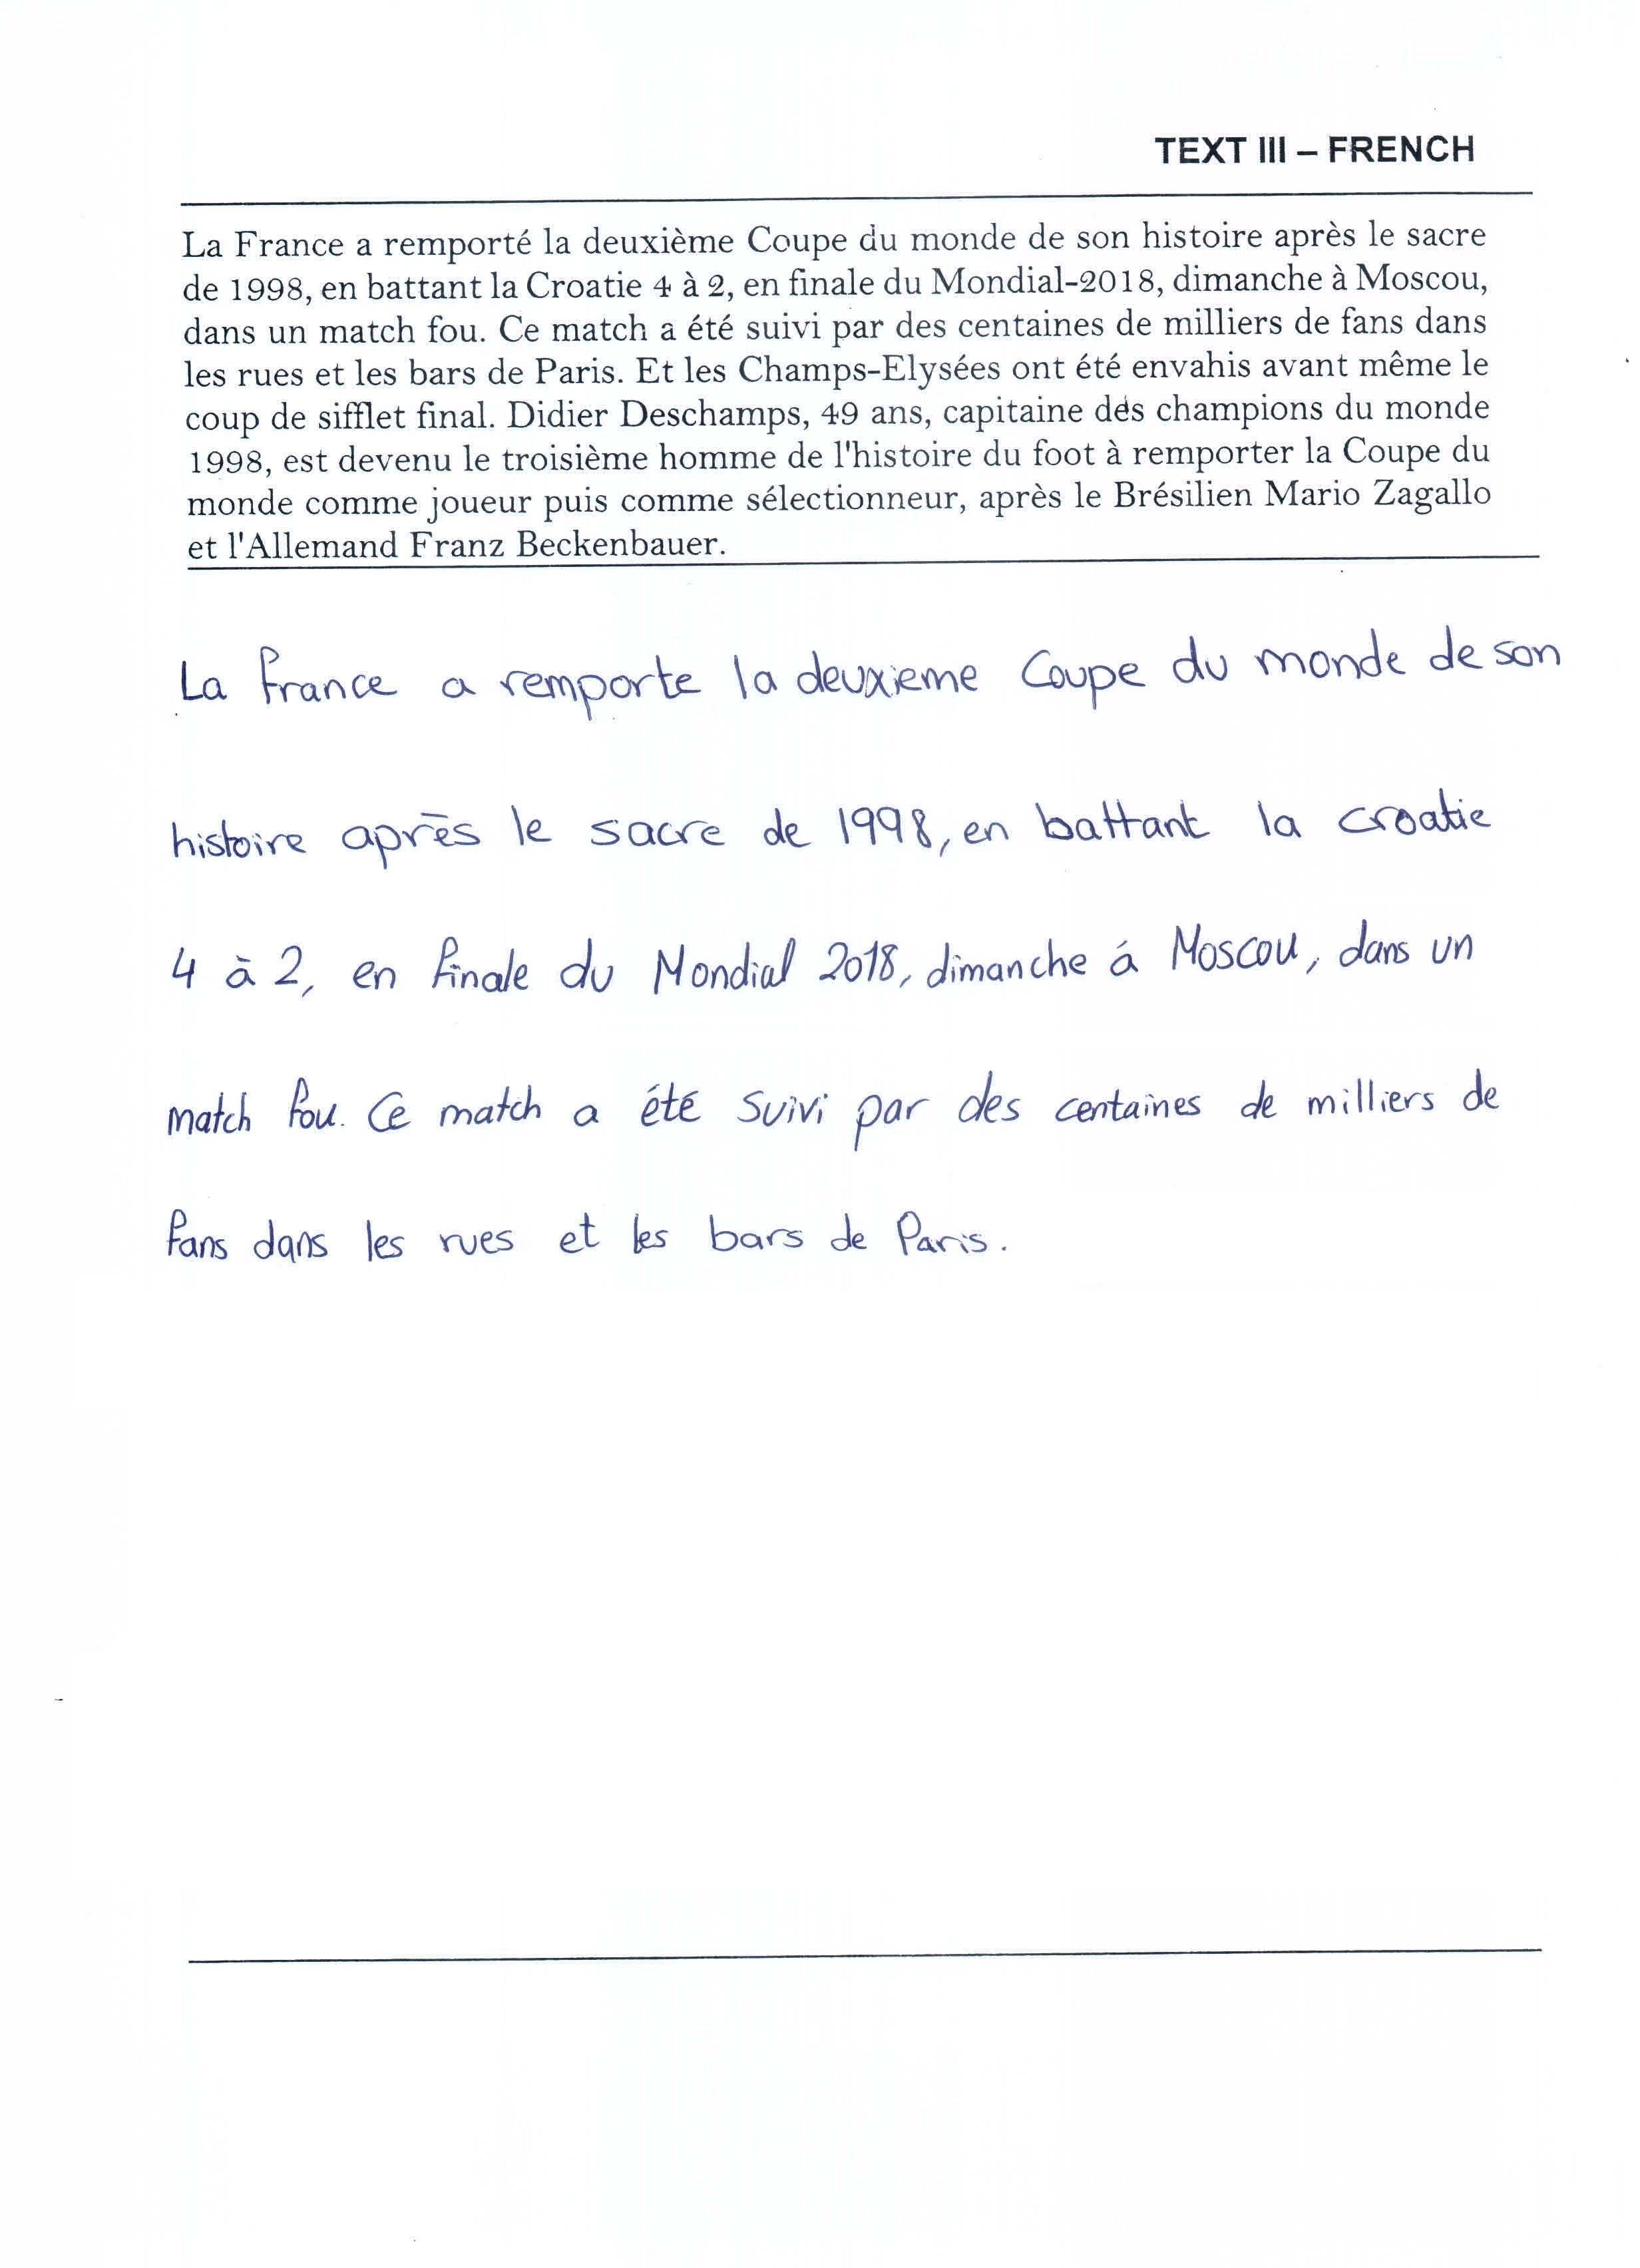 TEXT III – FRENCH
La France a remporté la deuxième Coupe du monde de son histoire après le sacre
de 1998, en battant la Croatie 4 à 2, en finale du Mondial-2018, dimanche à Moscou,
dans un match fou. Ce match a été suivi par des centaines de milliers de fans dans
les rues et les bars de Paris. Et les Champs-Elysées ont été envahis avant même le
coup de sifflet final. Didier Deschamps, 49 ans, capitaine des champions du monde
1998, est devenu le troisième homme de l'histoire du foot à remporter la Coupe du
monde comme joueur puis comme sélectionneur, après le Brésilien Mario Zagallo
et l'Allemand Franz Beckenbauer.
La france a remporte la deuxieme Coupe du monde de son
histoire après le sacre de 1998, en battant la croatie
4 à 2, en finale du Mondial 2018, dimanche á Moscou, dans un
match fou. Ce match a été suivi par des centaines de milliers de
fans dans les rues et les bars de Paris.